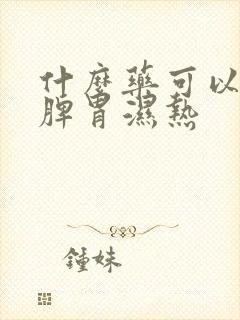 什麼藥可以
脾胃濕熱
鍾妹